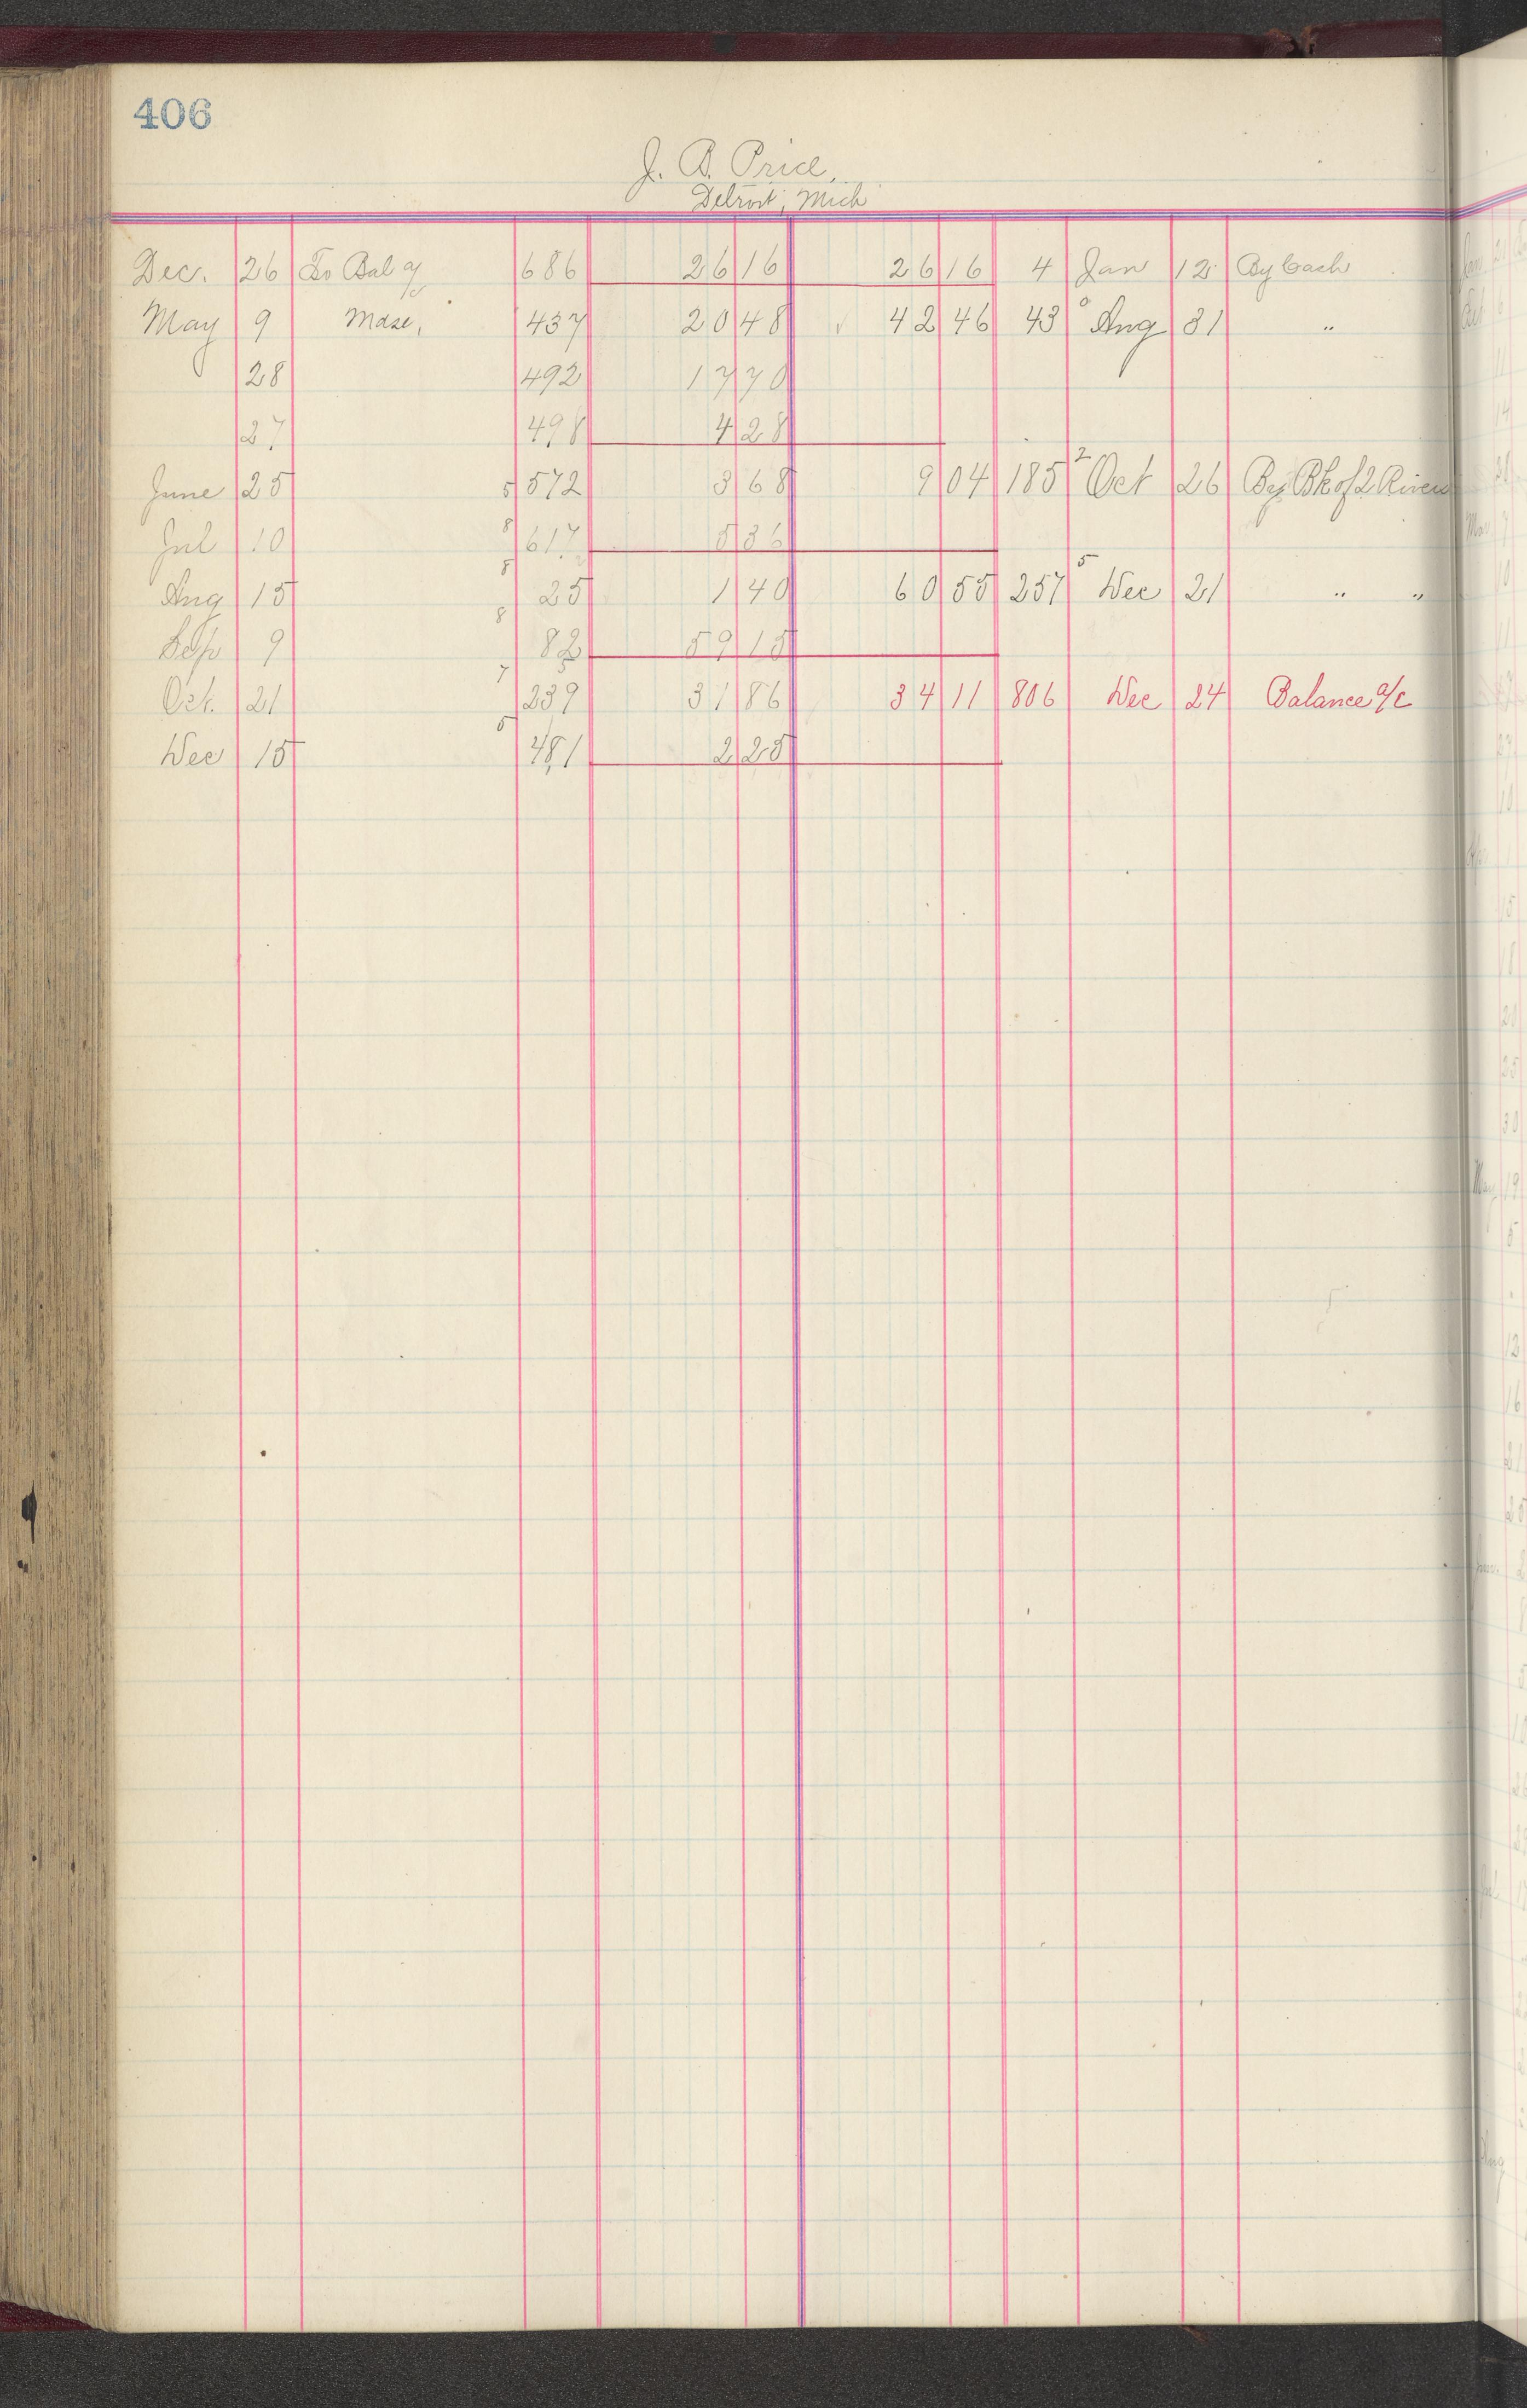 406
J. B. Price,
Detroit, Mich
Dec. 26 To Bal a/c 686 26 16 26 16 4 Jan 12 By Cash
May 9 Mdse, 437 20 48 ✓ 42 46 43 0 Aug 31 "
28 492 17 70
27 498 4 28
June 25 5 572 3 68 9 04 185 2 Oct 26 By Bk of 2 Rivers
Jul 10 8 617 5 36
Aug 15 8 25 1 40 60 55 257 5 Dec 21 " "
Sep 9 8 82 59 15
Oct. 21 7 239 31 86 34 11 806 Dec 24 Balance a/c
Dec 15 5 481 2 25